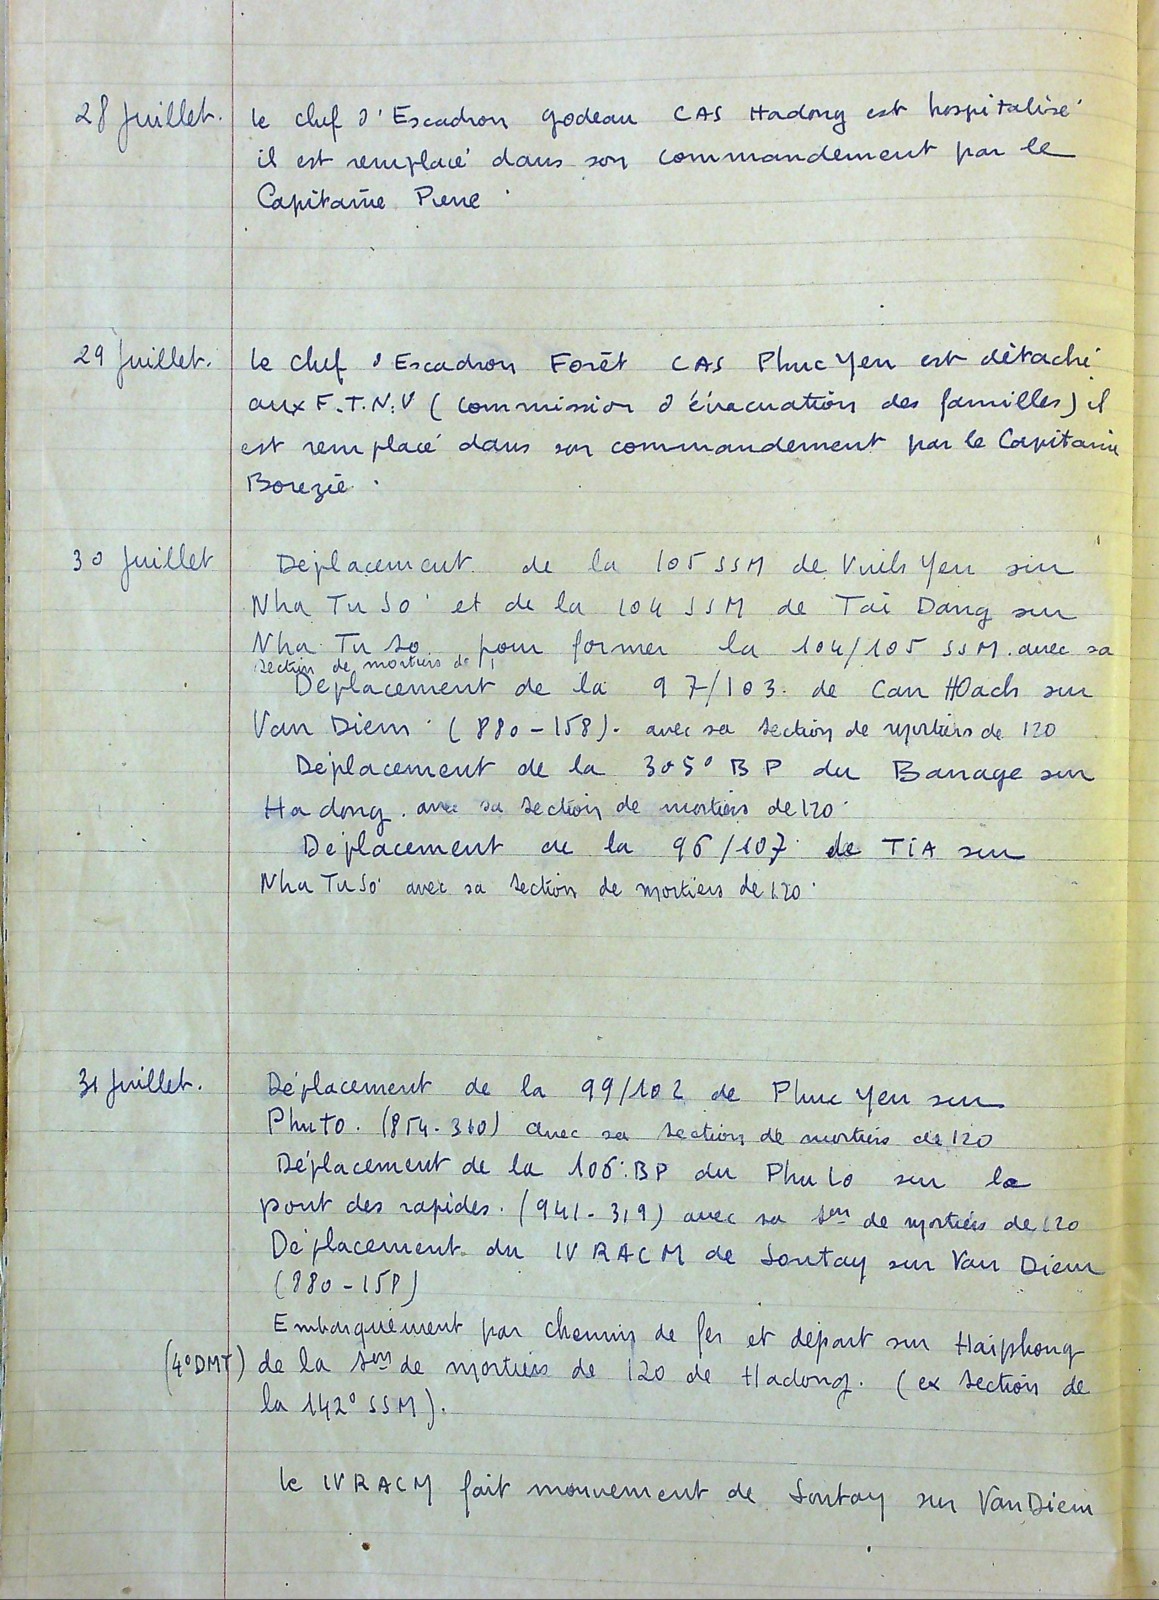 28 Juillet. le chef d'Escadron Godeau CAS Hadong est hospitalisé
il est remplacé dans son commandement par le
Capitaine Pierre.
29 Juillet. le chef d'Escadron Forêt CAS Phuc Yen est détaché
aux F.T.N.V (Commission d'évacuation des familles) il
est remplacé dans son commandement par le Capitaine
Borezie.
30 Juillet Déplacement de la 105 SSM de Vinh Yen sur
Nha Tu So et de la 104 SSM de Tai Dang sur
Nha Tu So pour former la 104/105 SSM. avec sa
section de mortiers de
Déplacement de la 97/103. de Can Hoach sur
Van Diem (880-158). avec sa section de mortiers de 120
Déplacement de la 305° BP du Barrage sur
Hadong. avec sa section de mortiers de 120.
Déplacement de la 96/107 de TiA sur
Nha Tu So avec sa section de mortiers de 120.
31 Juillet. Déplacement de la 99/102 de Phuc Yen sur
Phuto. (854-310) avec sa section de mortiers de 120
Déplacement de la 106° BP du Phu Lo sur le
pont des rapides. (941-319) avec sa son de mortiers de 120
Déplacement du IV RACM de Sontay sur Van Diem
(880-158)
Embarquement par chemin de fer et départ sur Haiphong
(4°DMT) de la son de mortiers de 120 de Hadong. (ex section de
la 142° SSM).
le IV RACM fait mouvement de Sontay sur Van Diem